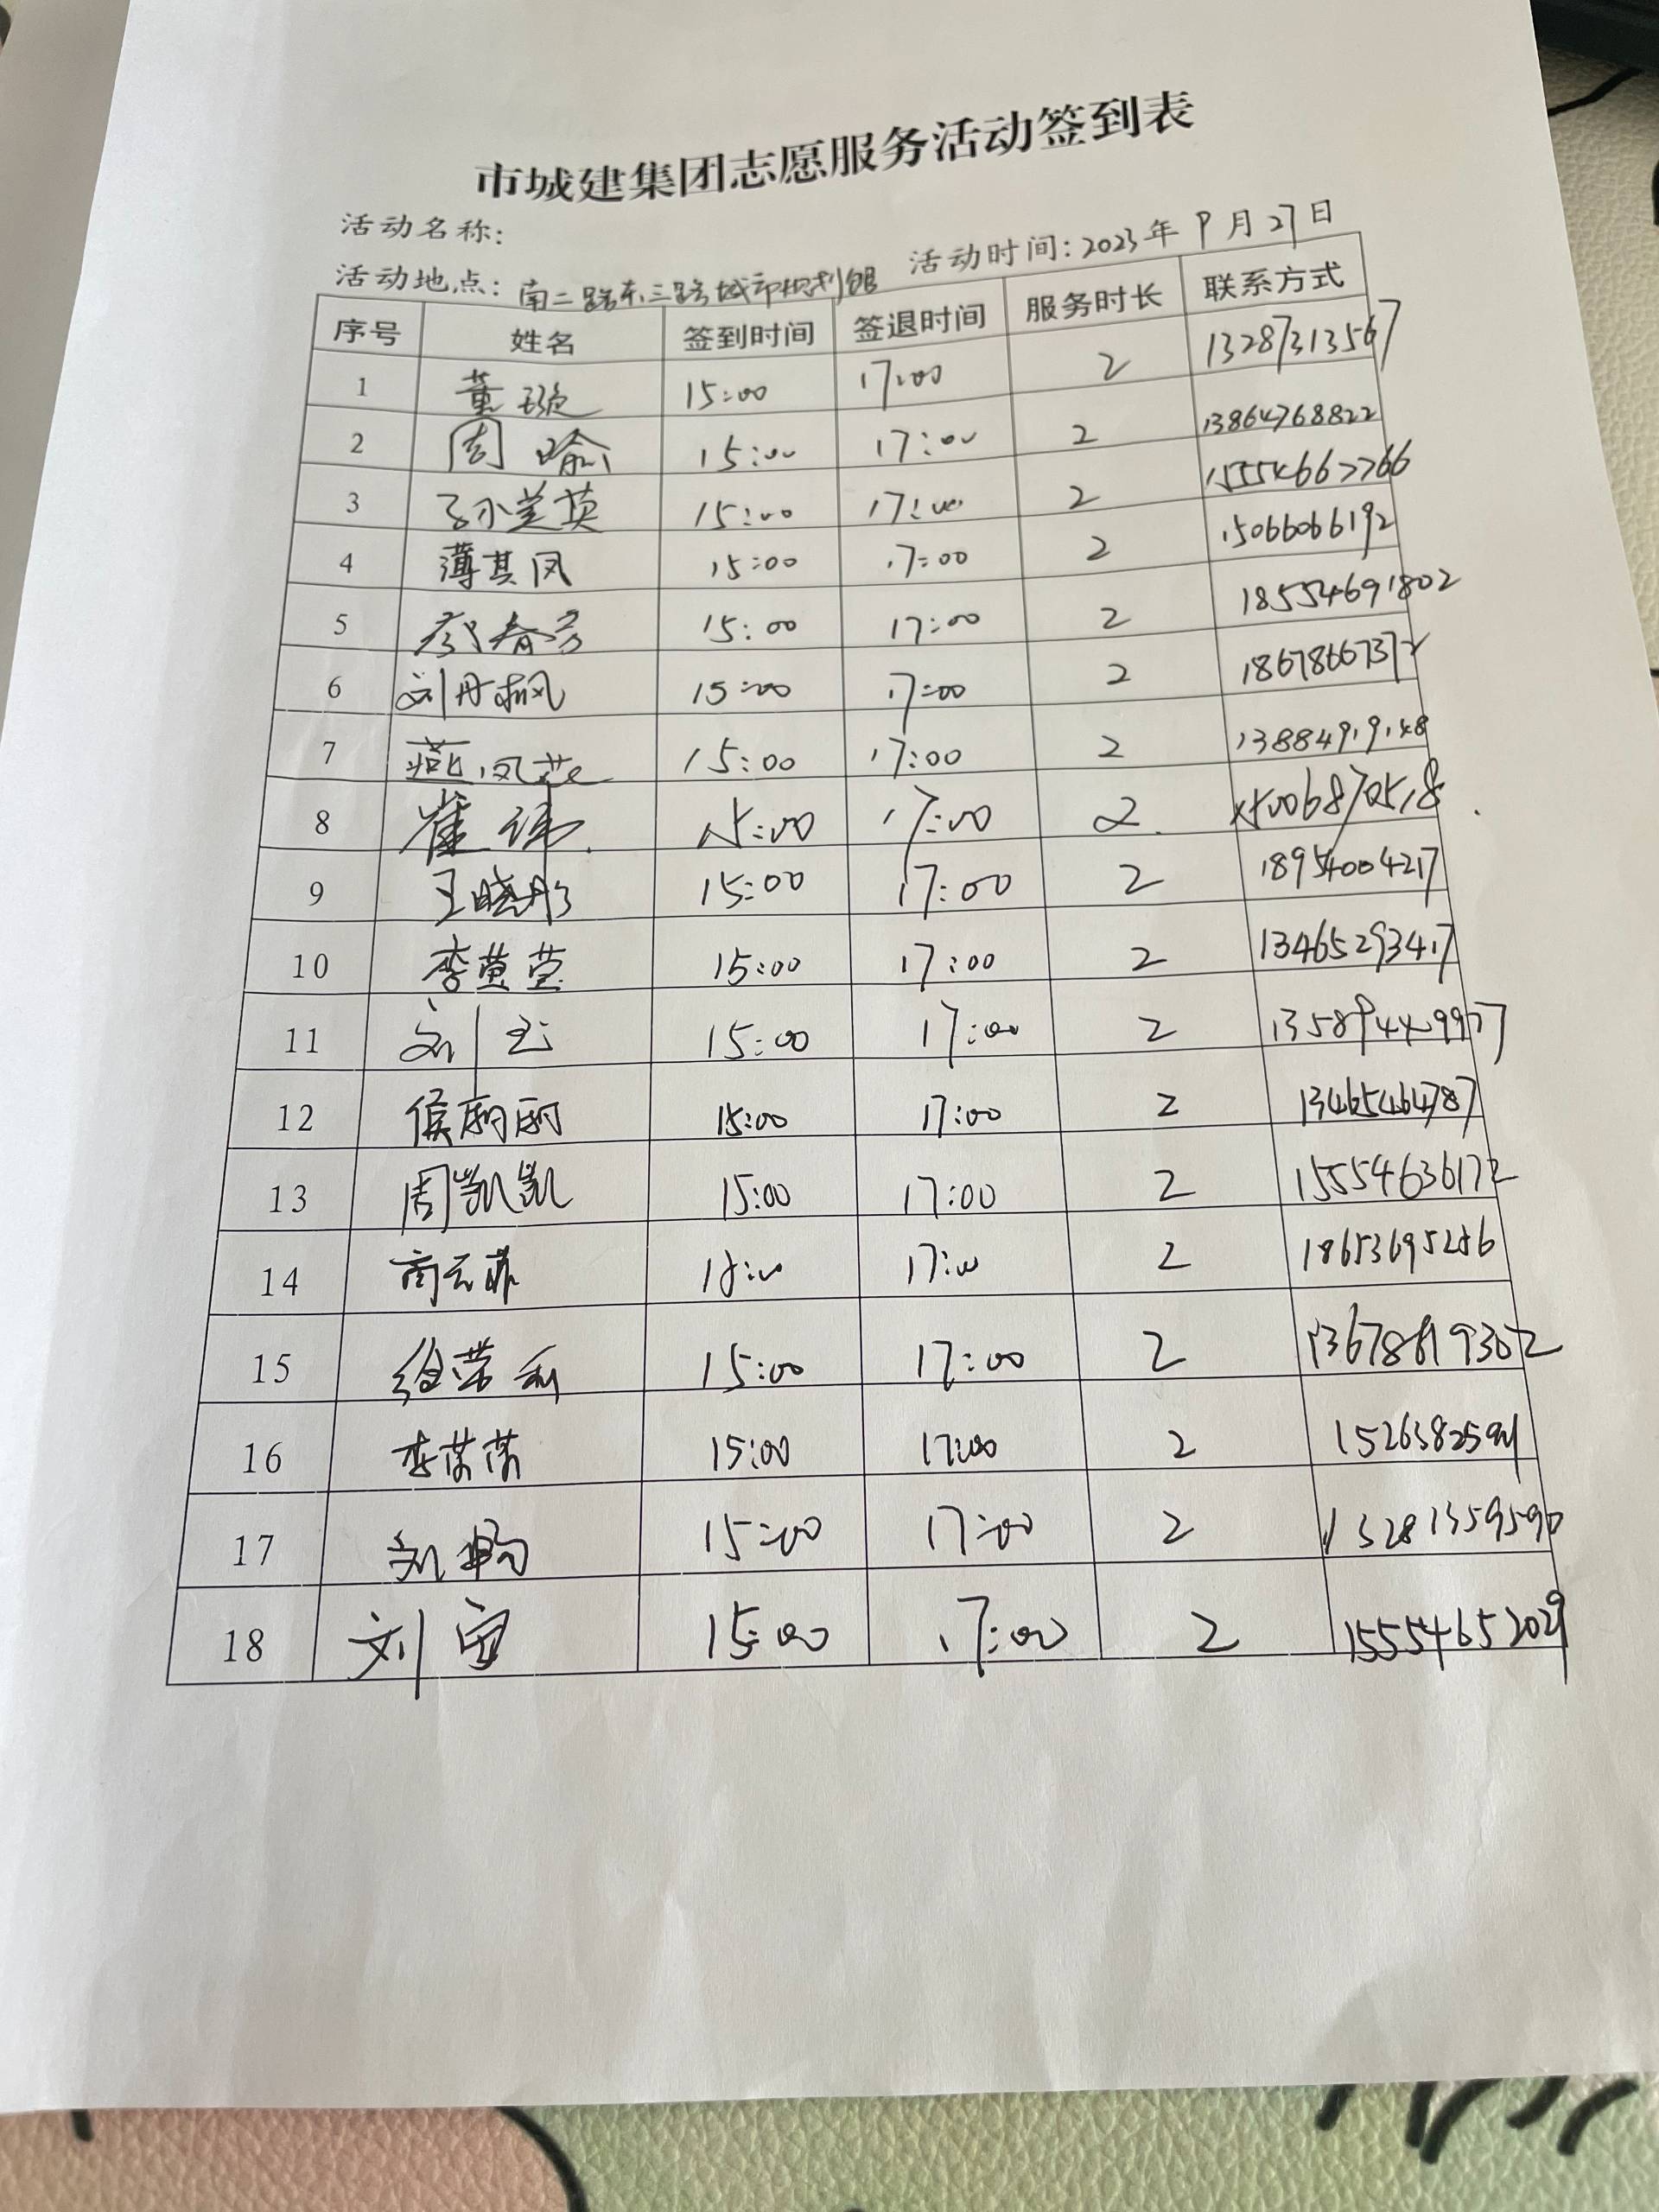 市城建集团志愿服务活动签到表
活动名称:
活动时间: 2023年 9月27日
活动地点: 南二路东三路城市规划馆
序号 姓名 签到时间 签退时间 服务时长 联系方式
1 董璇 15:00 17:00 2 13287313567
2 周喻 15:00 17:00 2 13864768822
3 孙兰英 15:00 17:00 2 15554667766
4 薄其凤 15:00 17:00 2 15066066192
5 春芳 15:00 17:00 2 18554691802
6 刘丹枫 15:00 17:00 2 18678667372
7 燕凤芝 15:00 17:00 2 13884919148
8 崔伟 15:00 17:00 2
9 王晓彤 15:00 17:00 2 18954004217
10 李萱萱 15:00 17:00 2 13465293417
11 刘玉 15:00 17:00 2 13589442997
12 侯丽丽 15:00 17:00 2 13465464787
13 周凯凯 15:00 17:00 2 15554636172
14 商云菲 15:00 17:00 2 18653695286
15 徐荣利 15:00 17:00 2 13678819302
16 李荣荣 15:00 17:00 2
17 刘畅 15:00 17:00 2 13281359590
18 刘宝 15:00 17:00 2 15554652029